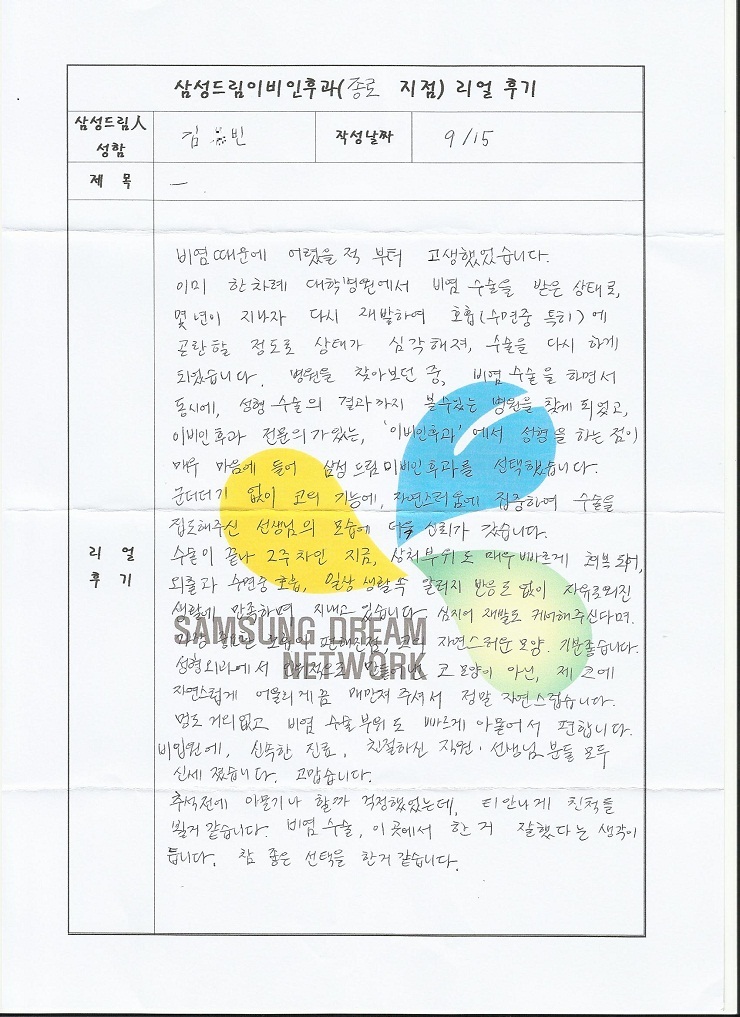 삼성드림이비인후과(종로 지점) 리얼 후기
삼성드림人 성함
김 빈
작성날짜
9/15
제 목
—
리 얼 후 기
비염때문에 어렸을적 부터 고생했었습니다.
이미 한차례 대학병원에서 비염 수술을 받은 상태로,
몇년이 지나자 다시 재발하여 호흡(수면중 특히)에
곤란할 정도로 상태가 심각해져, 수술을 다시 하게
되었습니다. 병원을 찾아보던 중, 비염 수술을 하면서
동시에, 성형 수술의 결과까지 볼수있는 병원을 찾게 되었고,
이비인후과 전문의가있는, '이비인후과'에서 성형을 하는 점이
매우 마음에 들어 삼성드림이비인후과를 선택했습니다.
군더더기 없이 코의 기능에, 자연스러움에 집중하여 수술을
집도해주신 선생님의 모습에 더욱 신뢰가 갔습니다.
수술이 끝나 2주차인 지금, 상처부위도 매우빠르게 회복 되어,
외출과 수면중 호흡, 일상 생활속 알러지 반응도 없이 자유로워진
생활에 만족하며 지내고 있습니다. 심지어 재발도 케어해주신다며.
가장 좋은건 호흡이 편해진점, 코의 자연스러운 모양. 기분좋습니다.
성형외과에서 만들어낸 코 모양이 아닌, 제 코에
자연스럽게 어울리게끔 매만져 주셔서 정말 자연스럽습니다.
멍도 거의없고 비염 수술부위도 빠르게 아물어서 편합니다.
비입원에, 신속한 진료, 친절하신 직원·선생님 분들 모두
신세 졌습니다. 고맙습니다.
추석전에 아물기나 할까 걱정했었는데, 티안나게 친척들
뵐거 같습니다. 비염 수술, 이곳에서 한거 잘했다는 생각이
듭니다. 참 좋은 선택을 한거 같습니다.
SAMSUNG DREAM
NETWORK